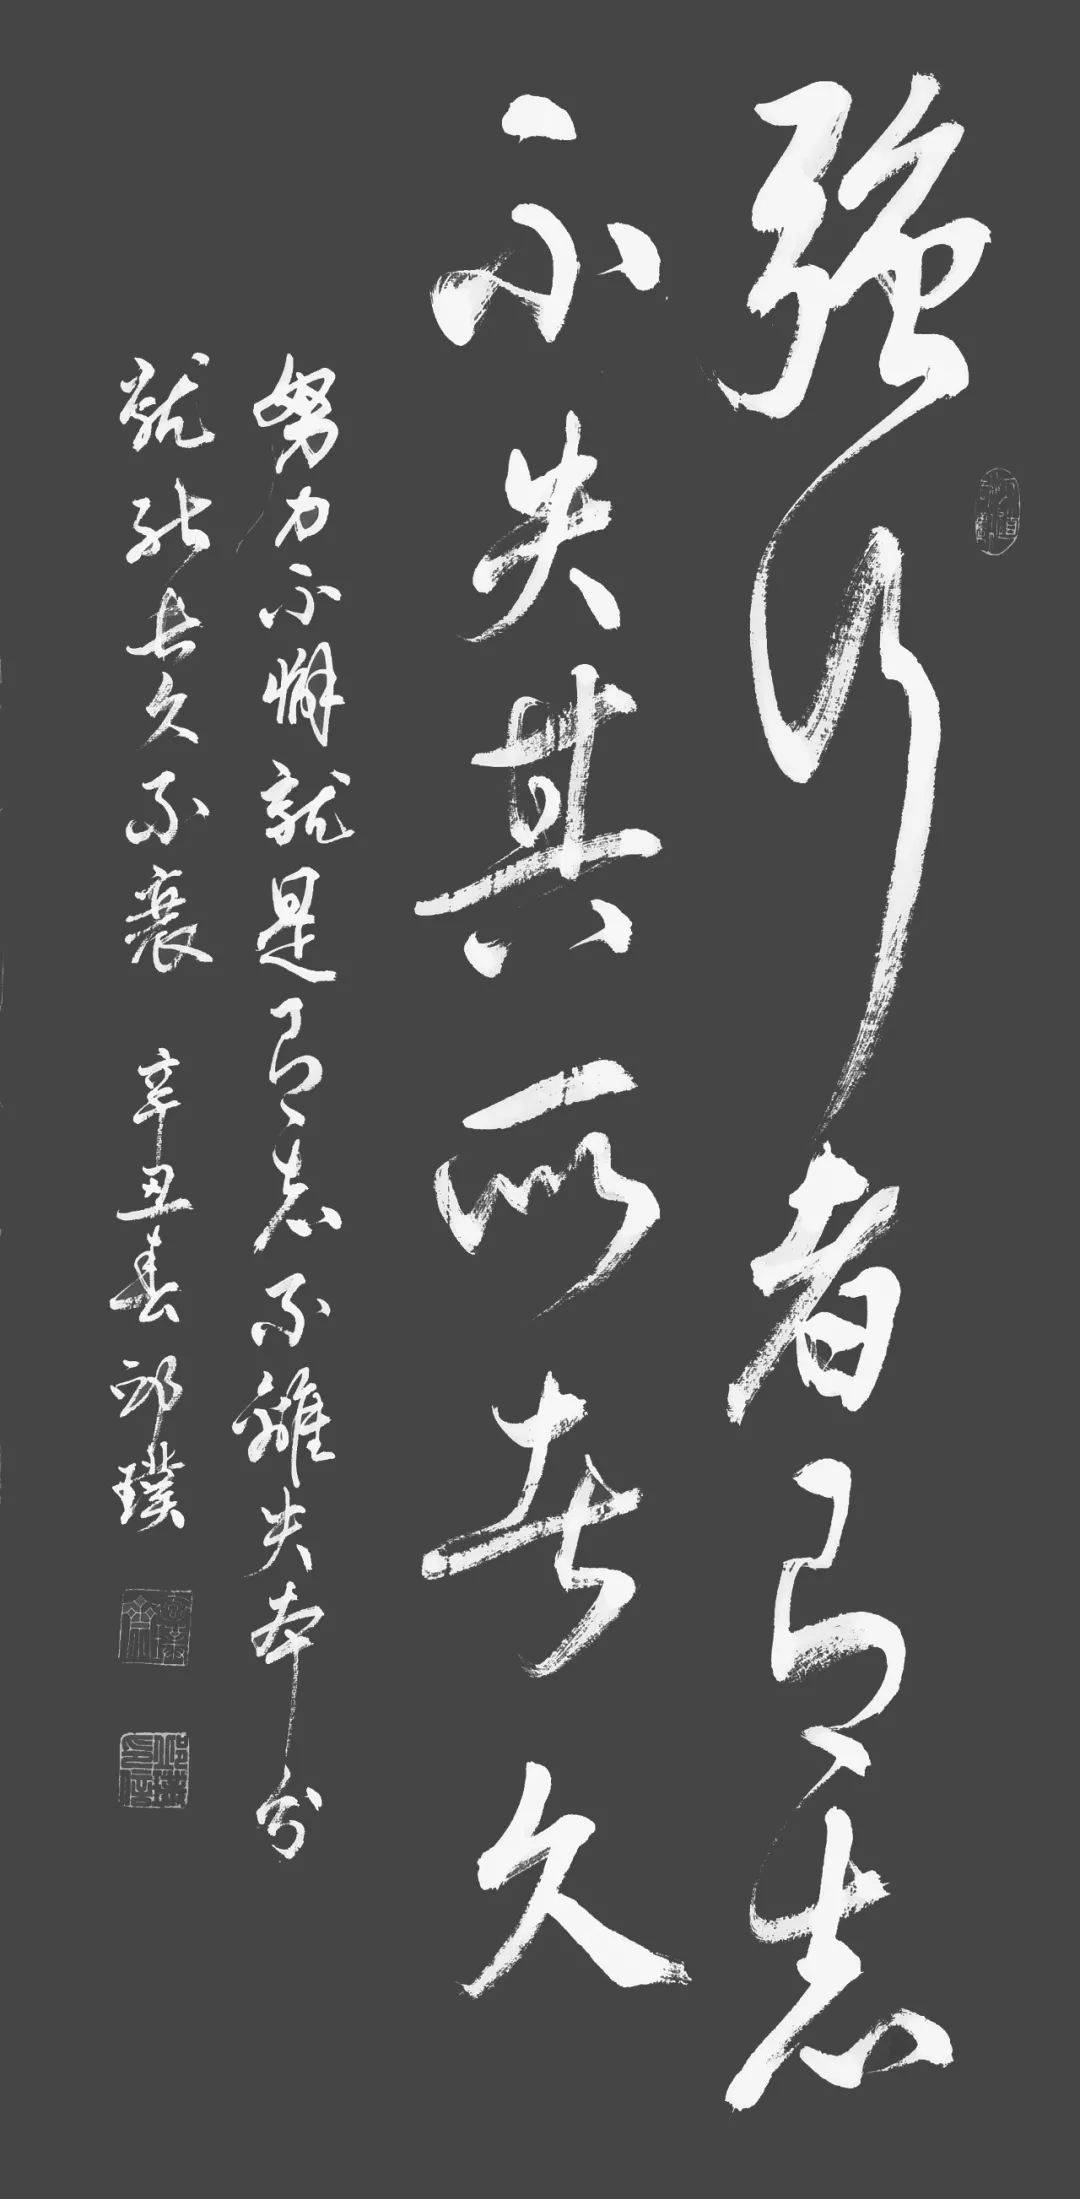 强行者有志
不失其所者久
努力不懈就是有志不离失本分
就能长久不衰 辛丑春 邱璞